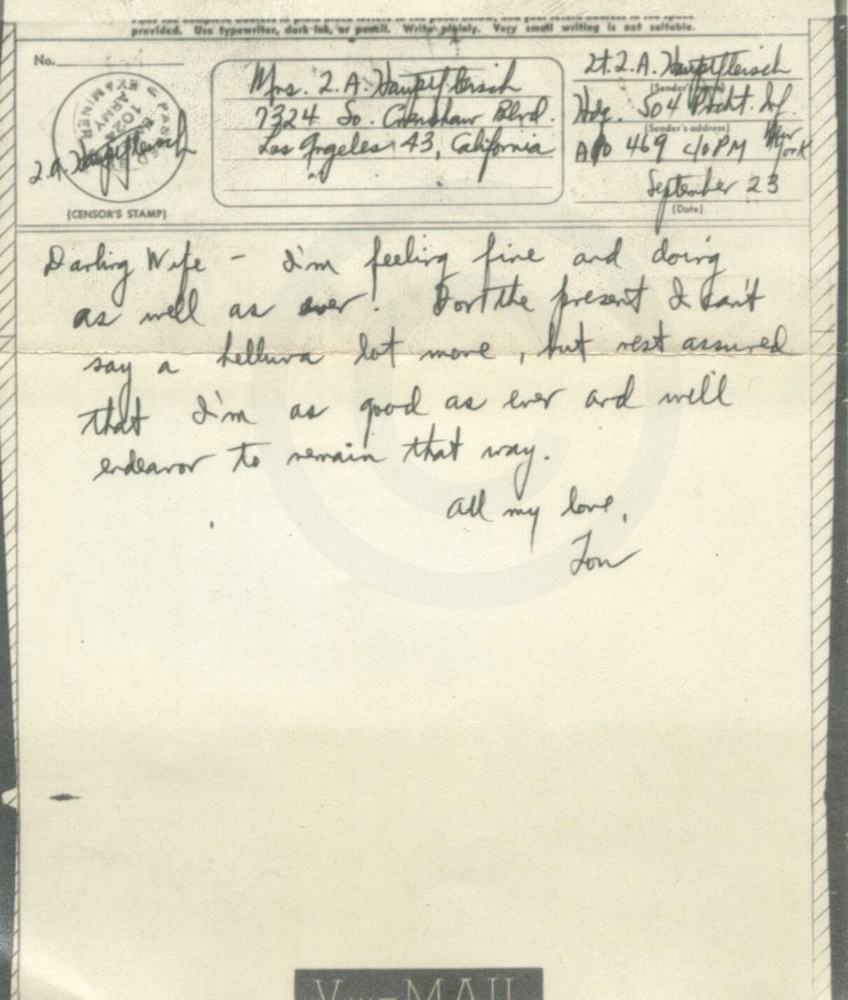 provided. Use typewriter, dark ink, or pencil. Write plainly. Very small writing is not suitable.
No.
PASSED BY
ARMY EXAMINER
(CENSOR'S STAMP)
Mrs. L. A. Hauptfleisch
7324 So. Crenshaw Blvd.
Los Angeles 43, California
Lt. L. A. Hauptfleisch
(Sender's name)
Hdq. 504 Prcht. Inf.
(Sender's address)
APO 469 c/o PM New York
September 23
(Date)
Darling Wife - I'm feeling fine and doing
as well as ever! For the present I can't
say a helluva lot more, but rest assured
that I'm as good as ever and will
endeavor to remain that way.
All my love,
Lou
V···-MAIL